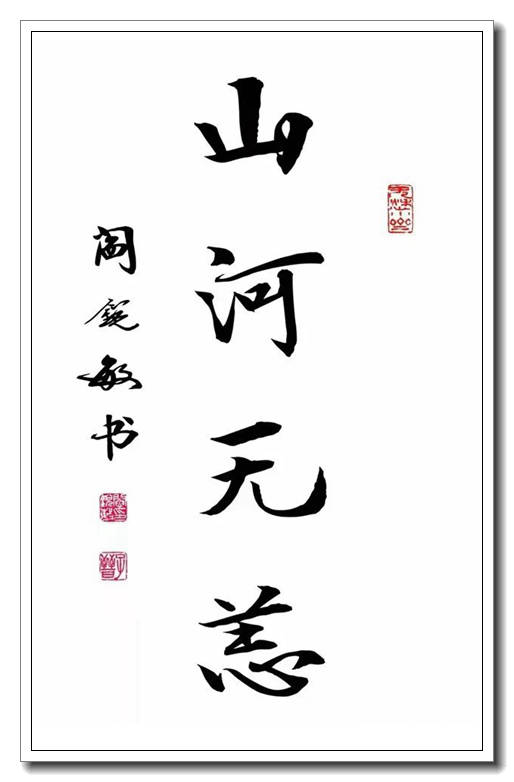 山河无恙
阎锐敏书